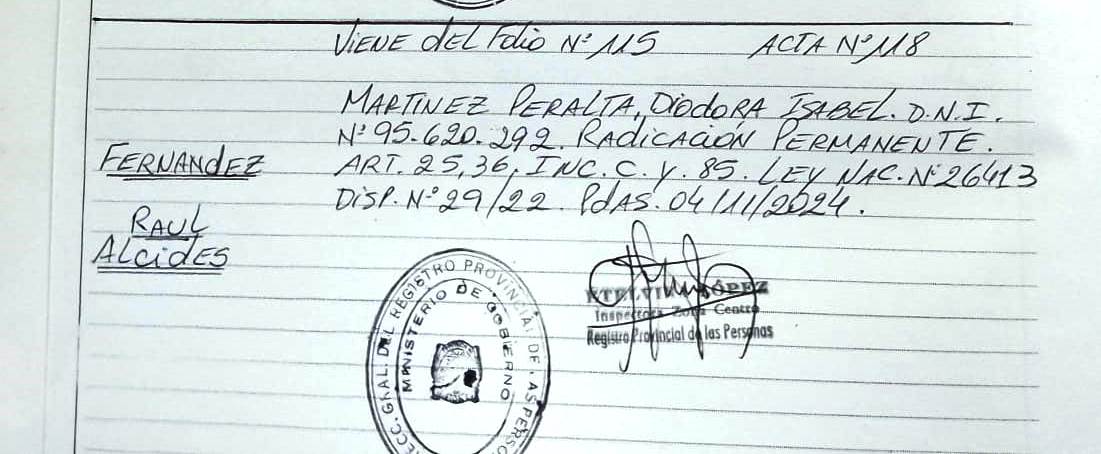 VIENE dEL Folio Nº 115 ACTA Nº 118
MARTINEZ PERALTA, DiodORA ISABEL. D.N.I.
Nº 95.620.292. RADICACION PERMANENTE.
FERNANdEZ ART. 25, 36, INC. C. Y. 85. LEY NAC. Nº 26413
DISP. Nº 29/22. PdAS. 04/11/2024.
RAUL
ALcidES
RECC. GRAL. DEL REGISTRO PROVINCIAL DE
MINISTERIO DE GOBIERNO
ETELVINA LÓPEZ
Inspectora Zona Centro
Registro Provincial de las Personas